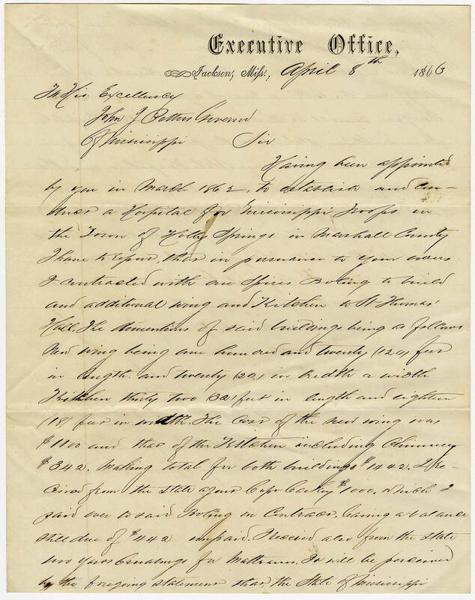 Executive Office,
Jackson, Miſs, April 8th 1866
To His Excellency
John J. Pettus Governor
Of Mississippi Sir
Having been appointed
by you in March 1862, to establish and
a Hospital for Mississippi Troops in
the Town of Holly Springs in Marshall County
I have to report, that in pursuance to your
I contracted with one Spires Boling to build
and additional wing and Kitchen to St Thomas'
Hall. The dementions of said buildings being as follows
New wing being one hundred and twenty (120) feet
in length and twenty (20) in width
Kitchen thirty two (32) feet in length and eighteen
(18) feet in width. The cost of the new wing was
$1100 and that of the Kitchen including Chimney
$342. Making total for both buildings $1442. I
from the State agent Capt $1000, which I
paid over to said Boling on Contract, leaving a balance
still due of $442 unpaid. I received also from the State
for It will be perceived
by the foregoing statement that the State of Mississippi